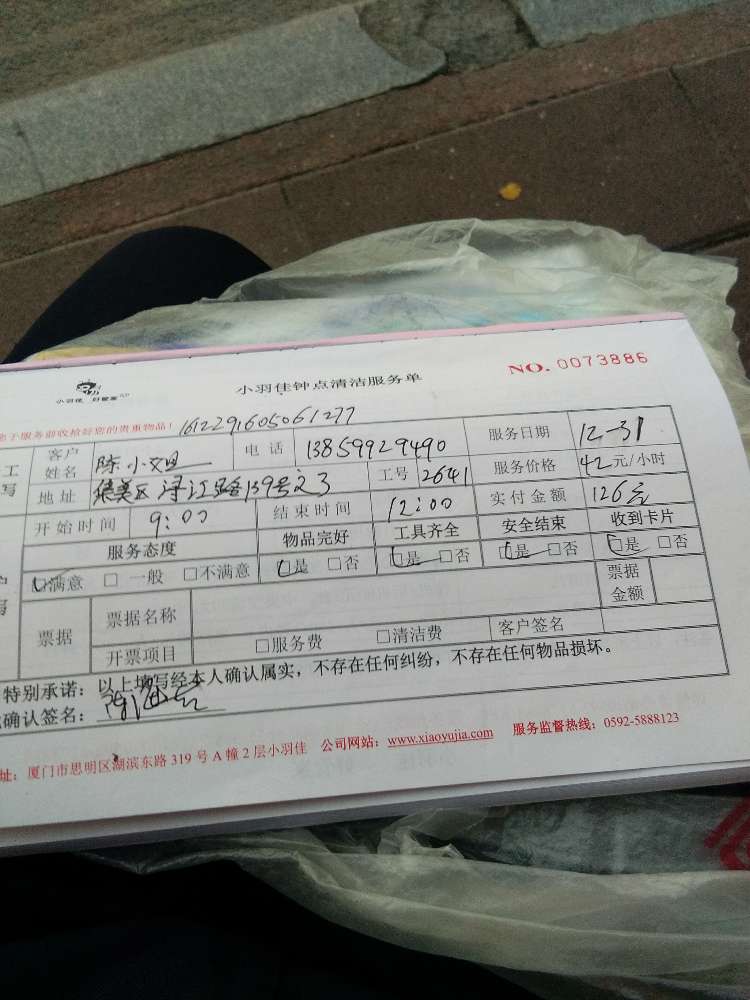 小羽佳 好管家
小羽佳钟点清洁服务单
NO. 0073886
于服务前收拾好您的贵重物品！ 1612291605061277
工 客户姓名 陈小姐 电话 13859929490 服务日期 12-31
写 地址 集美区浔江路139号之3 工号 2641 服务价格 42元/小时
开始时间 9:00 结束时间 12:00 实付金额 126元
服务态度 物品完好 工具齐全 安全结束 收到卡片
☑满意 □一般 □不满意 ☑是 □否 ☑是 □否 ☑是 □否 ☑是 □否
票据 票据名称 票据金额
开票项目 □服务费 □清洁费 客户签名
特别承诺：以上填写经本人确认属实，不存在任何纠纷，不存在任何物品损坏。
确认签名：
址：厦门市思明区湖滨东路 319 号 A 幢 2 层小羽佳 公司网站：www.xiaoyujia.com 服务监督热线：0592-5888123